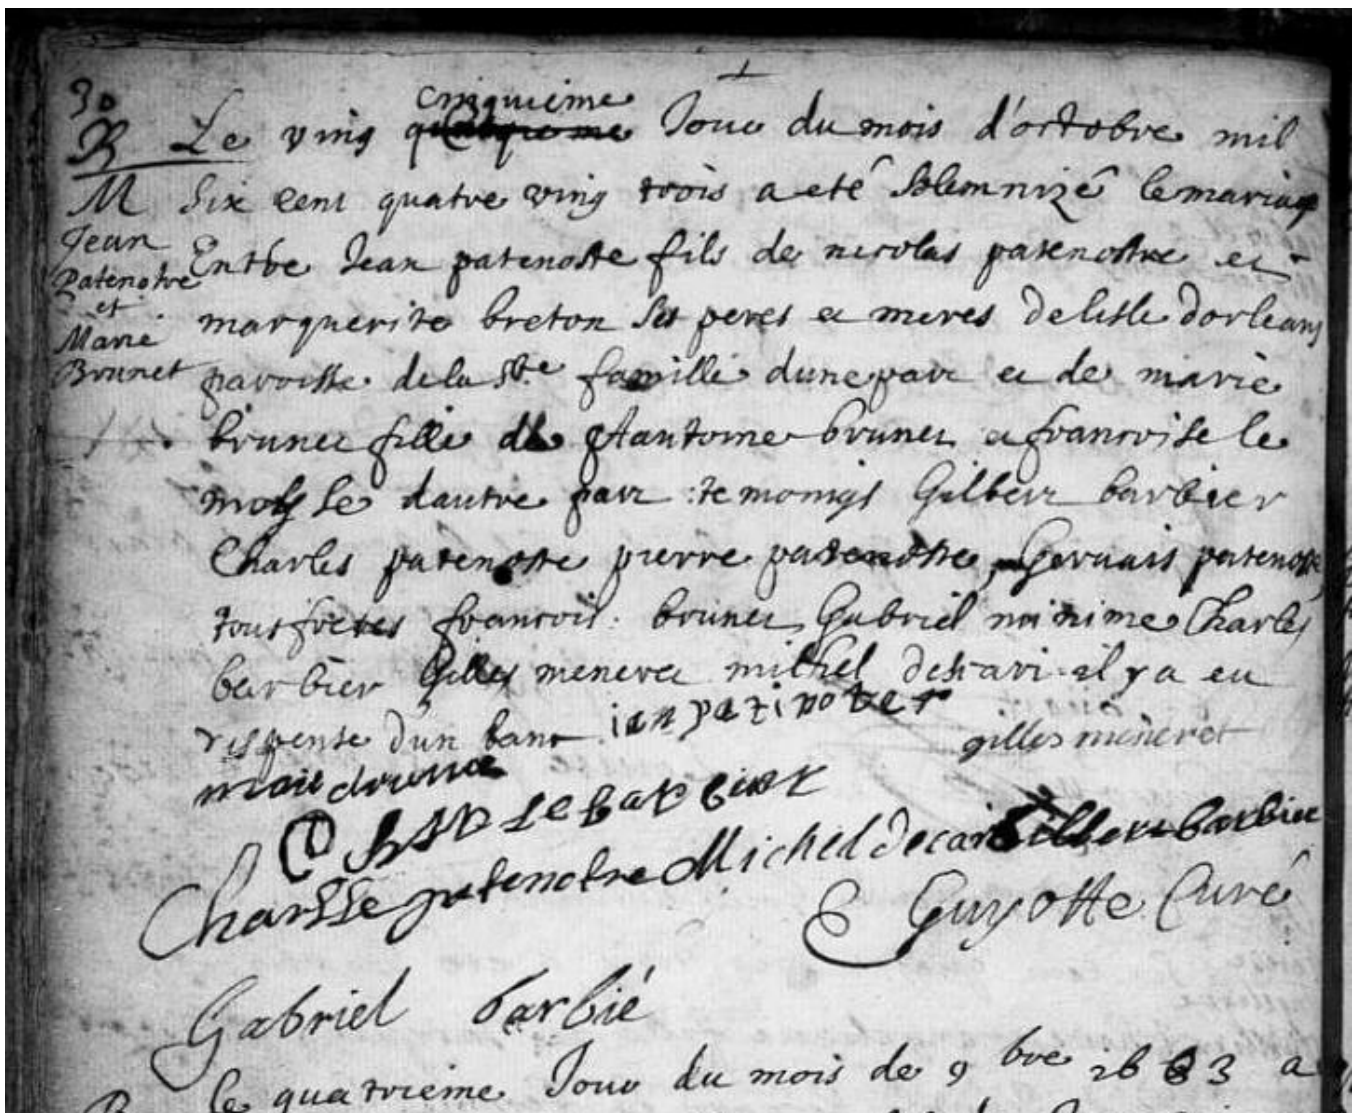 30
B
M
Jean
Patenotre
et
Marie
Brunet
cinquieme
Le ving quatrieme Jour du mois d'octobre mil
Six cent quatre ving trois a eté solemnizé le mariage
Entre Jean patenostre fils de nicolas patenostre et
marguerite breton ses peres et meres de lisle dorleans
paroisse de la Ste famille dune part et de marie
brunet fille de Antoine brunet a francoise le
moisle dautre part temoings Gilbert barbier
Charles patenostre pierre patenostre Gervais patenostre
tous freres francois brunet Gabriel Charles
barbier Gilles meneret michel descari il y a eu
dispense dun banc
ian patinoter
gilles meneret
Charlle barbier
Charlle patenotre Michel decari Gilbere barbier
Guyotte Curé
Gabriel barbié
le quatrieme Jour du mois de 9 bre 1683 a